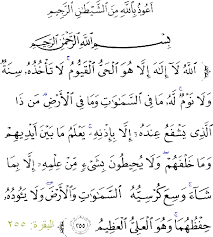 أعوذ بالله من الشيطان الرجيم
بِسْمِ اللَّهِ الرَّحْمَٰنِ الرَّحِيمِ
﴿ اللَّهُ لَا إِلَٰهَ إِلَّا هُوَ الْحَيُّ الْقَيُّومُ ۚ لَا تَأْخُذُهُ سِنَةٌ
وَلَا نَوْمٌ ۚ لَهُ مَا فِي السَّمَاوَاتِ وَمَا فِي الْأَرْضِ ۗ مَن ذَا
الَّذِي يَشْفَعُ عِندَهُ إِلَّا بِإِذْنِهِ ۚ يَعْلَمُ مَا بَيْنَ أَيْدِيهِمْ
وَمَا خَلْفَهُمْ ۖ وَلَا يُحِيطُونَ بِشَيْءٍ مِّنْ عِلْمِهِ إِلَّا بِمَا
شَاءَ ۚ وَسِعَ كُرْسِيُّهُ السَّمَاوَاتِ وَالْأَرْضَ ۖ وَلَا يَئُودُهُ
حِفْظُهُمَا ۚ وَهُوَ الْعَلِيُّ الْعَظِيمُ ٢٥٥ ﴾ البقرة: ٢٥٥